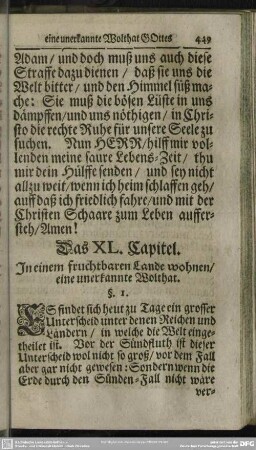 eine unerkannte Wolthat GOttes 449
Adam/ und doch muß uns auch diese
Straffe dazu dienen/ daß sie uns die
Welt bitter/ und den Himmel süß ma-
che: Sie muß die bösen Lüste in uns
dämpffen/und uns nöthigen/ in Chri-
sto die rechte Ruhe für unsere Seele zu
suchen. Nun HERR/hilff mir vol-
lenden meine saure Lebens-Zeit/ thu
mir dein Hülffe senden/ und sey nicht
all zu weit/wenn ich heim schlaffen geh/
auff daß ich friedlich fahre/und mit der
Christen Schaare zum Leben auffer-
steh/Amen!
Das XL. Capitel.
In einem fruchtbaren Lande wohnen/
eine unerkannte Wolthat.
§. 1.
ES findet sich heut zu Tage ein grosser
Unterscheid unter denen Reichen und
Ländern/ in welche die Welt einge-
theilet ist. Vor der Sündfluth ist dieser
Unterscheid wol nicht so groß/ vor dem Fall
aber gar nicht gewesen: Sondern wenn die
Erde durch den Sünden-Fall nicht wäre
ver-